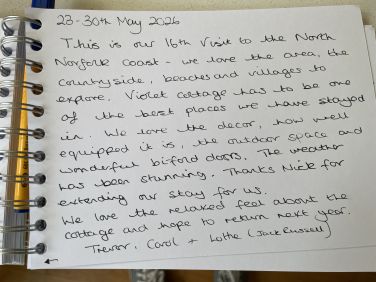 23-30th May 2026
This is our 16th Visit to the North
Norfolk Coast - we love the area, the
countryside, beaches and villages to
explore. Violet cottage has to be one
of the best places we have stayed
in. We love the decor, how well
equipped it is, the outdoor space and
wonderful bifold doors. The weather
has been stunning. Thanks Nick for
extending our stay for us.
We love the relaxed feel about the
cottage and hope to return next year.
Trevor, Carol + Lottie (Jack Russell)